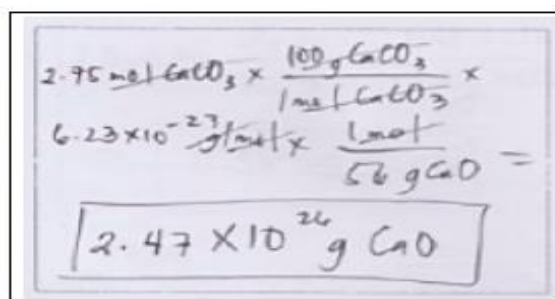 2.75 mol CaCO₃ × 100 g CaCO₃ / 1 mol CaCO₃ ×
6.23×10⁻²³ g/mol × 1 mol / 56 g CaO =
2.47 × 10²⁶ g CaO